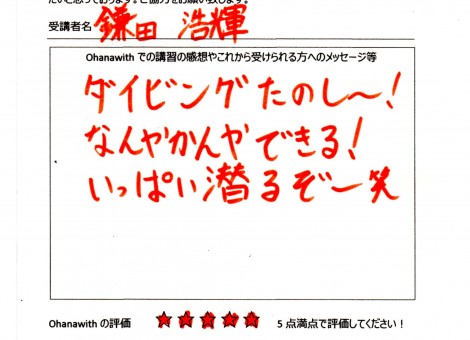 たいと思っております。ご協力をお願い致します。
受講者名 鎌田 浩輝
Ohanawith での講習の感想やこれから受けられる方へのメッセージ等
ダイビングたのし〜!
なんやかんやできる!
いっぱい潜るぞー笑
Ohanawith の評価 ★★★★★ 5点満点で評価してください!